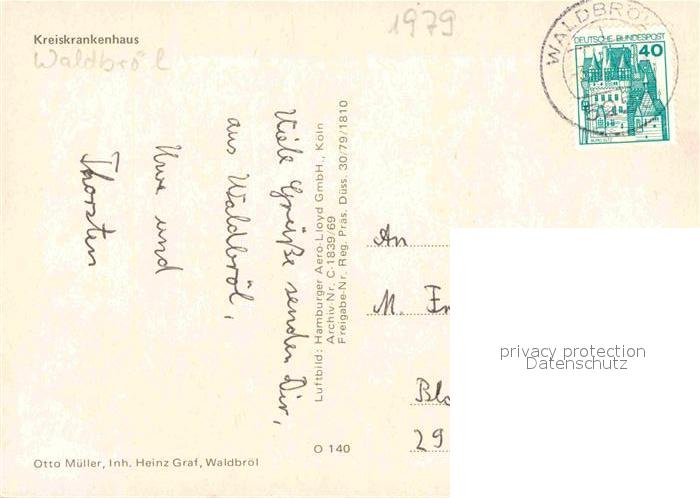 1979
Kreiskrankenhaus
Waldbröl
WALDBRÖL
DEUTSCHE BUNDESPOST
40
BURG ELTZ
Viele Grüße senden Dir,
aus Waldbröl,
Uwe und
Thorsten
Luftbild: Hamburger Aero-Lloyd GmbH., Köln
Archiv-Nr. C-1839/69
Freigabe-Nr. Reg. Präs. Düss. 30/79/1810
An
M. Er
Blo
29
privacy protection
Datenschutz
O 140
Otto Müller, Inh. Heinz Graf, Waldbröl